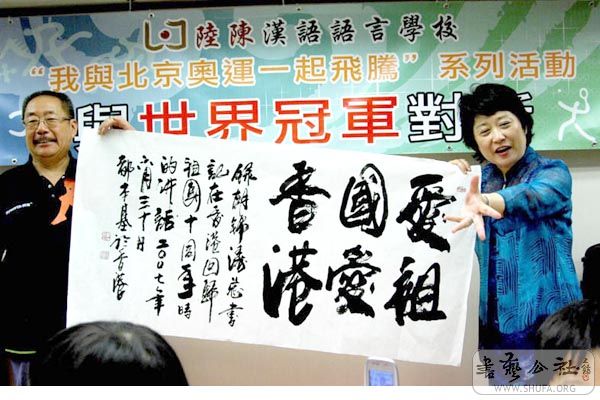 陸陳漢語語言學校
“我與北京奧運一起飛騰”系列活動
與世界冠軍對
愛祖
國愛
香港
胡錦濤總書
記在香港回歸
祖國十周年時
的講話二〇〇七年
六月三十日
於香港
書藝公社
WWW.SHUFA.ORG